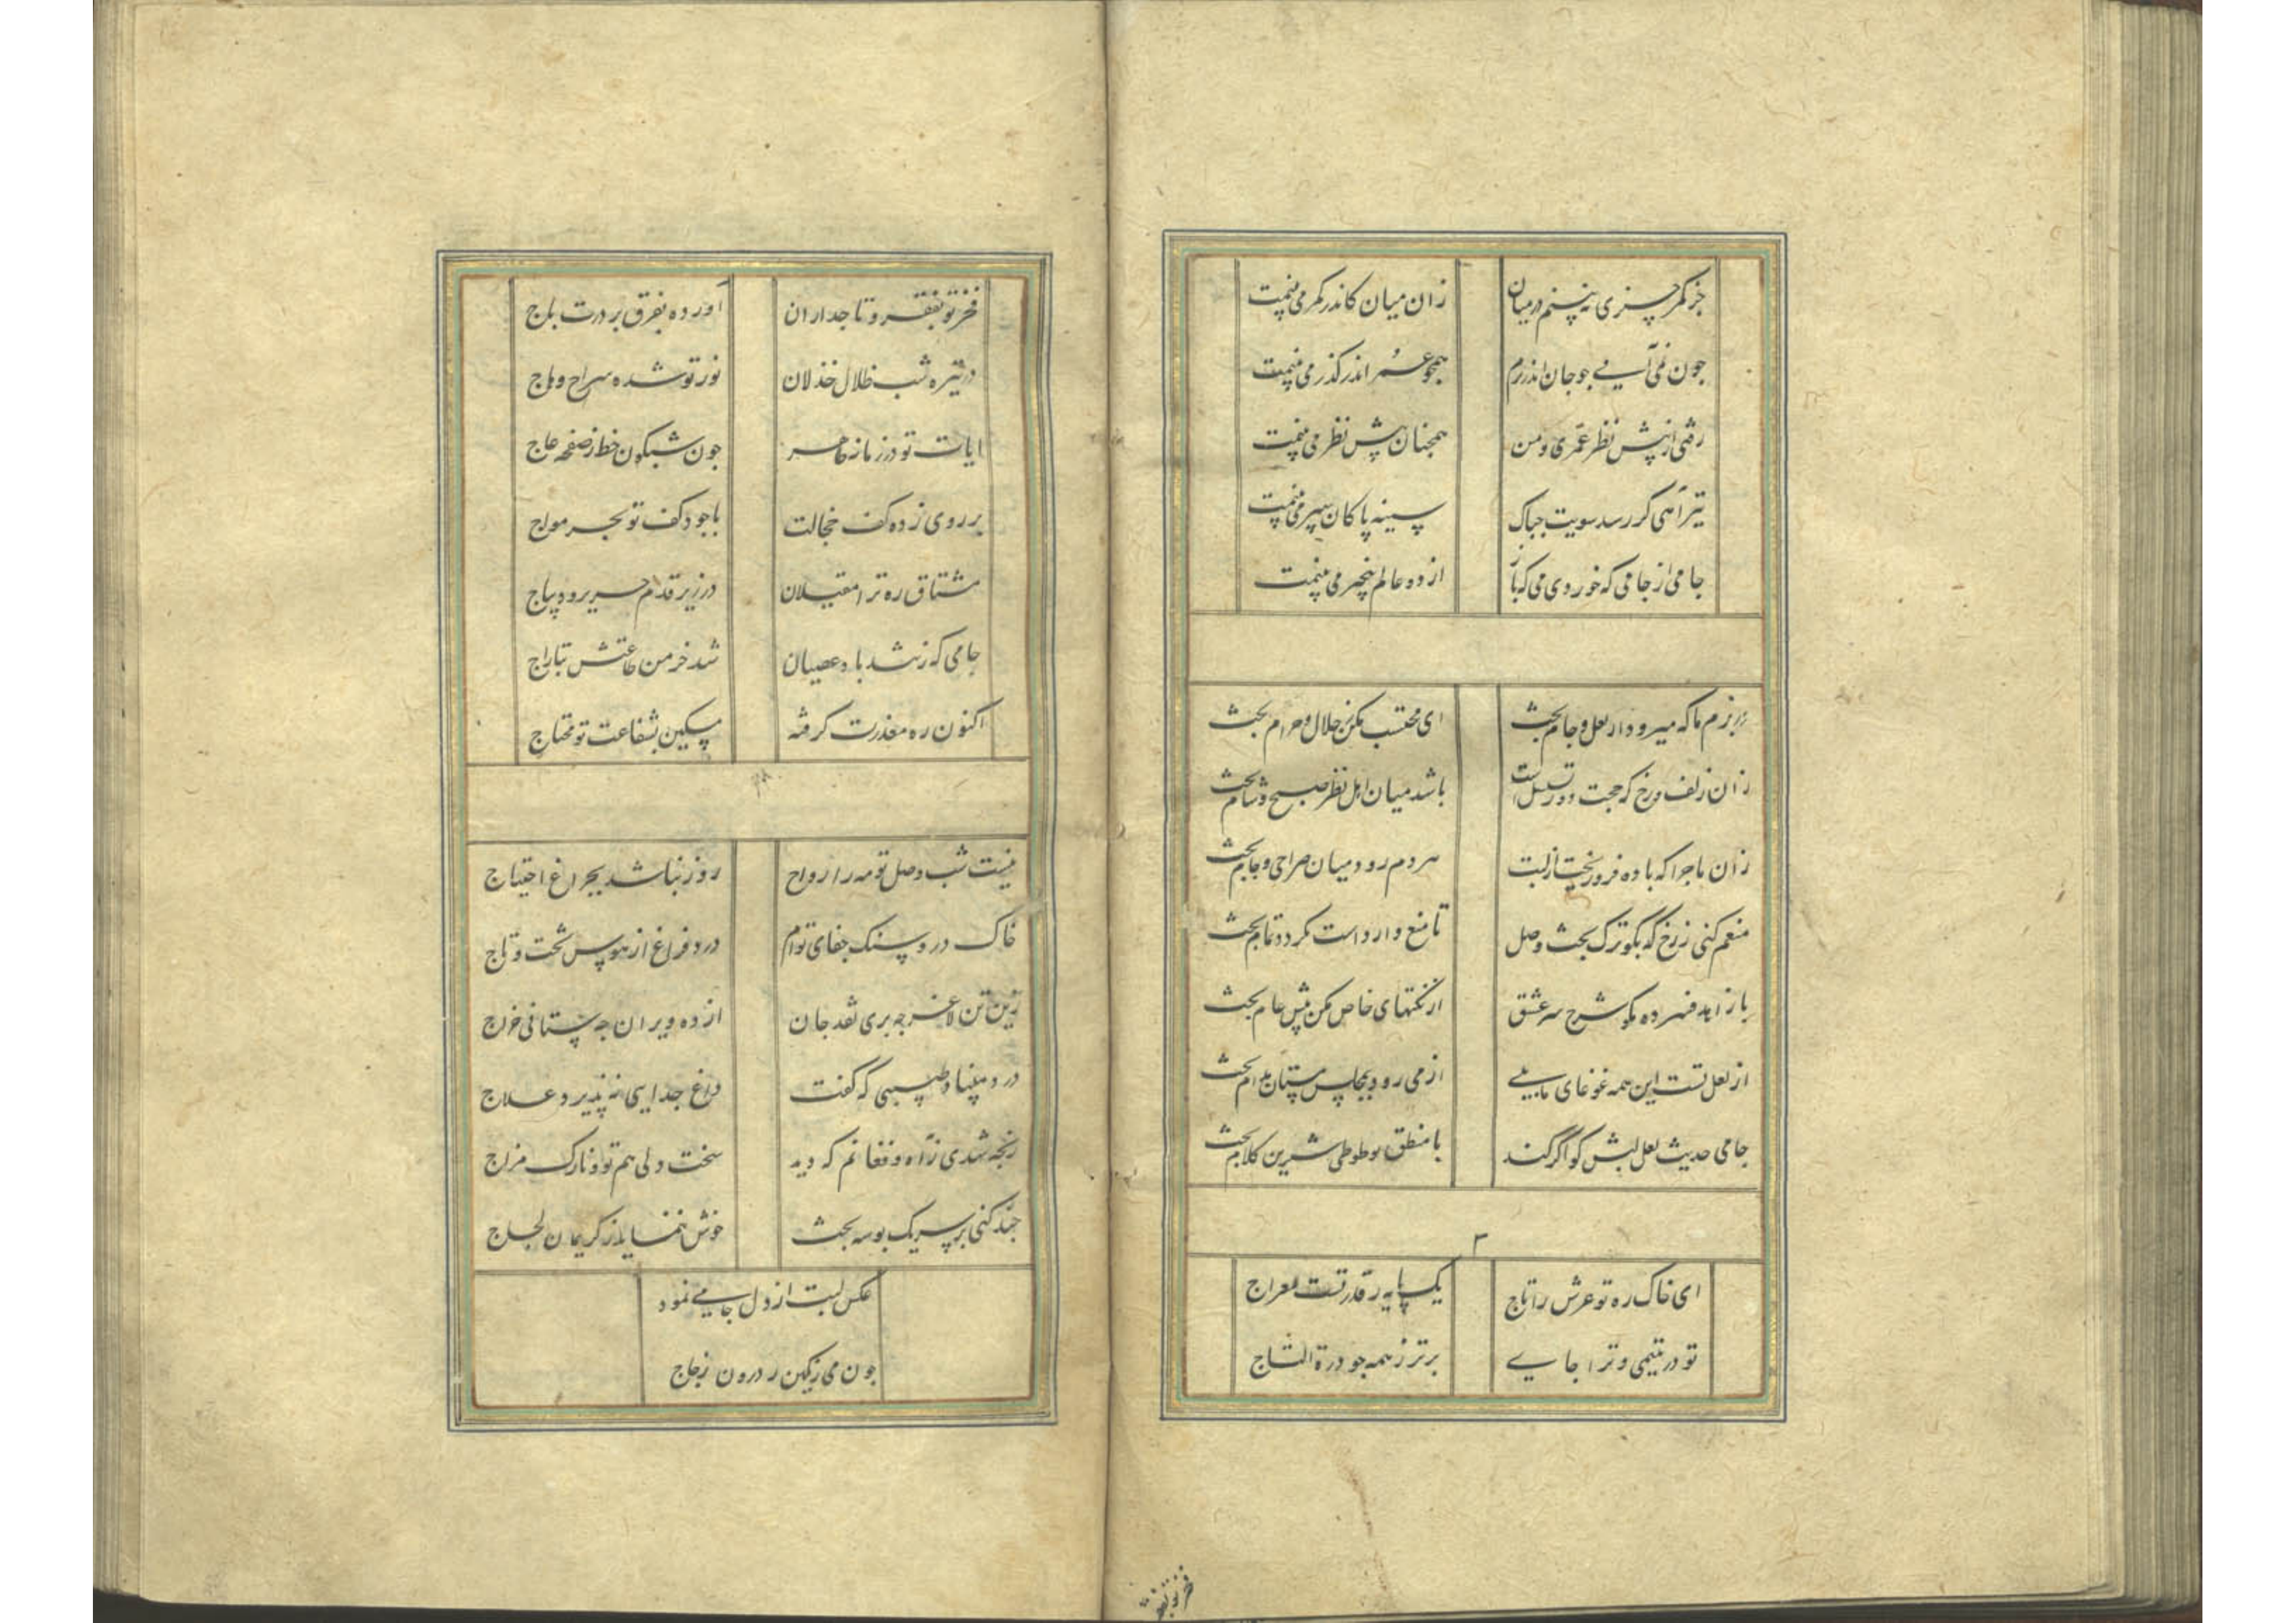 جز کمر چیزی نه بینم در میان
زان میان کاندر کمر می بینمت
چون نمی آیی چو جان اندر برم
همچو عمر اندر گذر می بینمت
رفتی از پیش نظر عمری و من
همچنان پیش نظر می بینمت
تیر آهی گر رسد سویت چه باک
سینه پاکان سپر می بینمت
جامی از جامی که خوردی می که باز
از دو عالم بیخبر می بینمت
در بزم ما که میرود از لعل و جام بحث
ای محتسب مکن ز حلال و حرام بحث
زان زلف و رخ که حجت دور تسلسل است
باشد میان اهل نظر صبح و شام بحث
زان ماجرا که باده فرو ریخت از لبت
هر دم رود میان صراحی و جام بحث
منعم کنی ز رخ که بگو ترک بحث وصل
تا منع وارد است نگردد تمام بحث
با زاهد فسرده مگو شرح سر عشق
از نکتهای خاص مکن پیش عام بحث
از لعل تست این همه غوغای ما بلی
از می رود بمجلس مستان مدام بحث
جامی حدیث لعل لبش گو اگر کند
با منطق تو طوطی شیرین کلام بحث
۳
ای خاک ره تو عرش را تاج
یک پایه ز قدر تست معراج
تو در یتیمی و ترا جای
برتر ز همه چو درة التاج
فخر تو بفقر و تاجداران
آورده بفرق بر درت باج
در تیره شب ظلال خذلان
نور تو شده سراج وهاج
ایات تو در زمانه ظاهر
چون شبگون خط ز صفحه عاج
بر روی زده کف خجالت
با جود کف تو بحر مواج
مشتاق ره ترا مغیلان
در زیر قدم حریر و دیباج
جامی که ز تند باد عصیان
شد خرمن طاعتش بتاراج
اکنون ره معذرت گرفته
مسکین بشفاعت تو محتاج
نیست شب وصل تو مه را رواج
روز نباشد بچراغ احتیاج
خاک در و سنگ جفای توام
درد فراغ از هوس تخت و تاج
زین تن لاغر چه بری نقد جان
از ده ویران چه ستانی خراج
درد مبیناد طبیبی که گفت
داغ جدایی نه پذیرد علاج
رنجه شدی ز آه و فغانم که دید
سخت دلی هم تو و نازک مزاج
چند کنی بر سر یک بوسه بحث
خوش ننماید ز کریمان لجاج
عکس لبت از دل جامی نمود
چون می رنگین ز درون زجاج
فخر تو بفقر